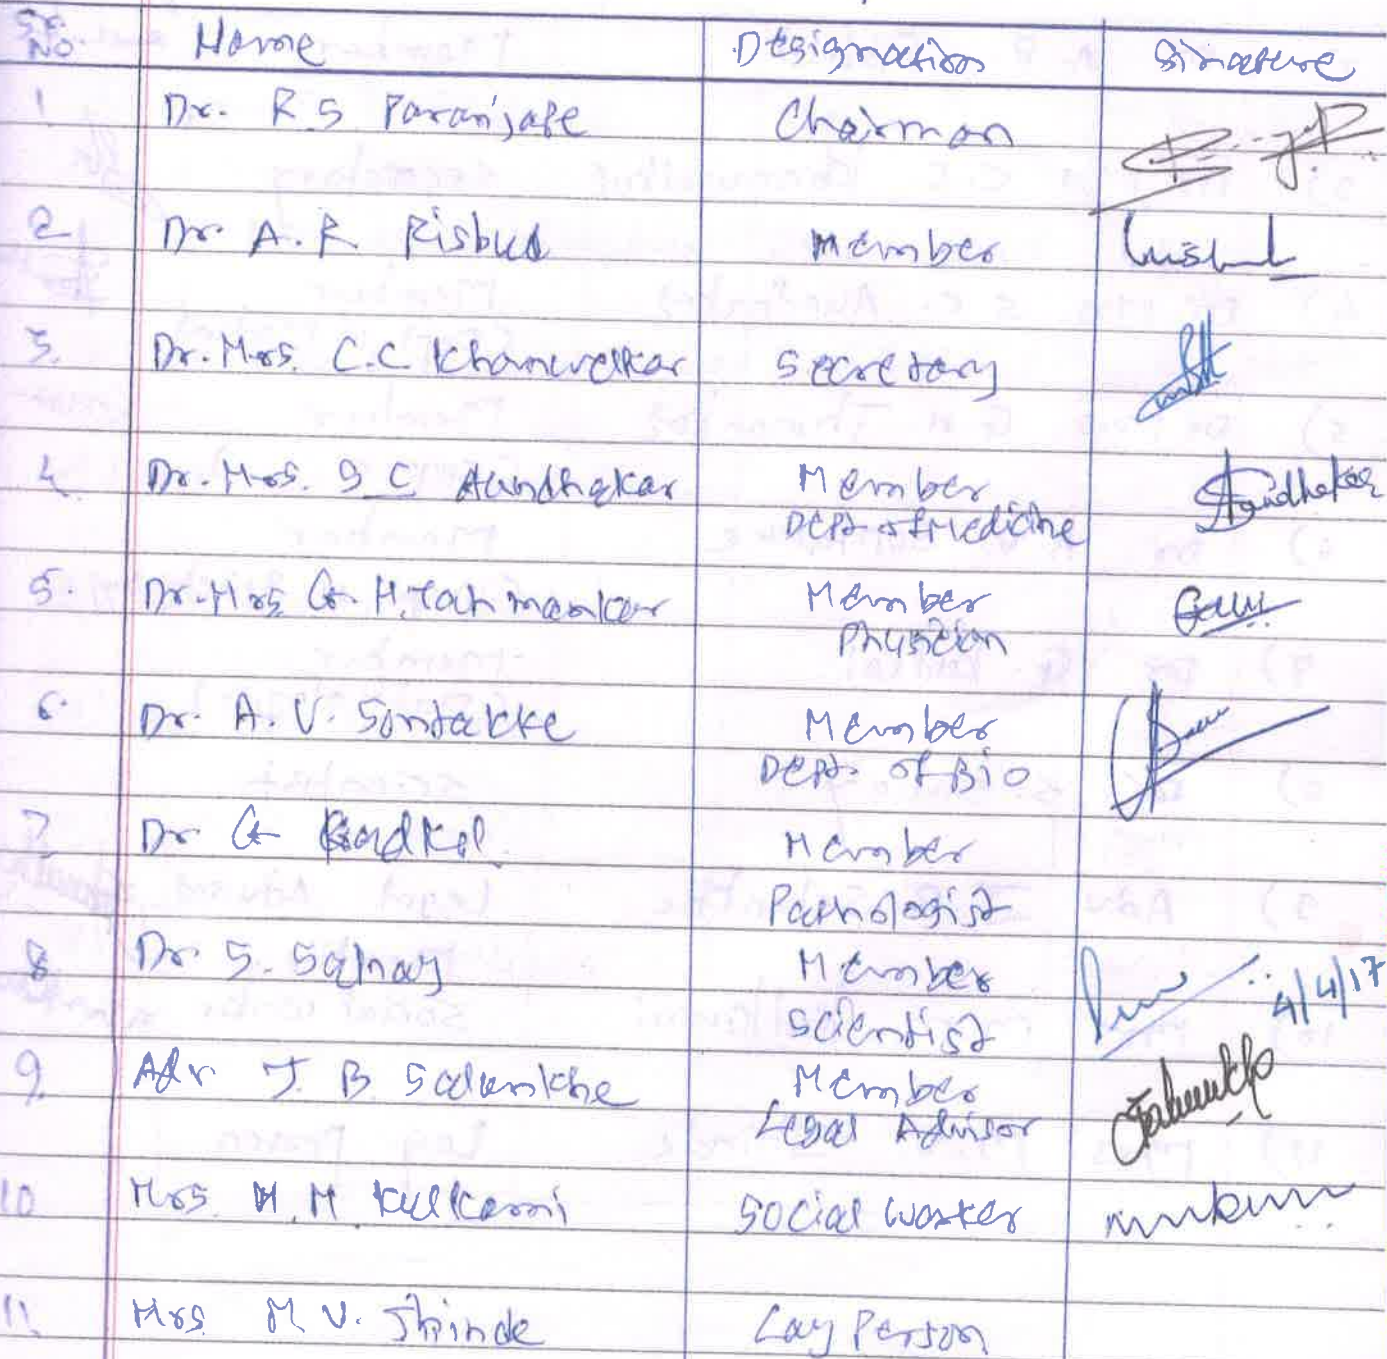 Sr. No. Name Designation Sinature
1. Dr. R S Paranjape Chairman
2 Dr. A. R Risbud Member
3. Dr. Mrs. C.C Khanwelkar Secretary
4. Dr. Mrs. S C Aundhakar Member Aundhakar
Dept of Medicine
5. Dr. Mrs G. H. Member
Physician
6. Dr. A. V. Sontakke Member
Dept. of Bio
7 Dr G Member
Pathologist
8. Dr. S. Member
Scientist 4/4/17
9. Adv J. B Salunkhe Member
Legal Advisor
10 Mrs. M. M Kulkarni Social Worker
11. Mrs M V. Shinde Lay Person